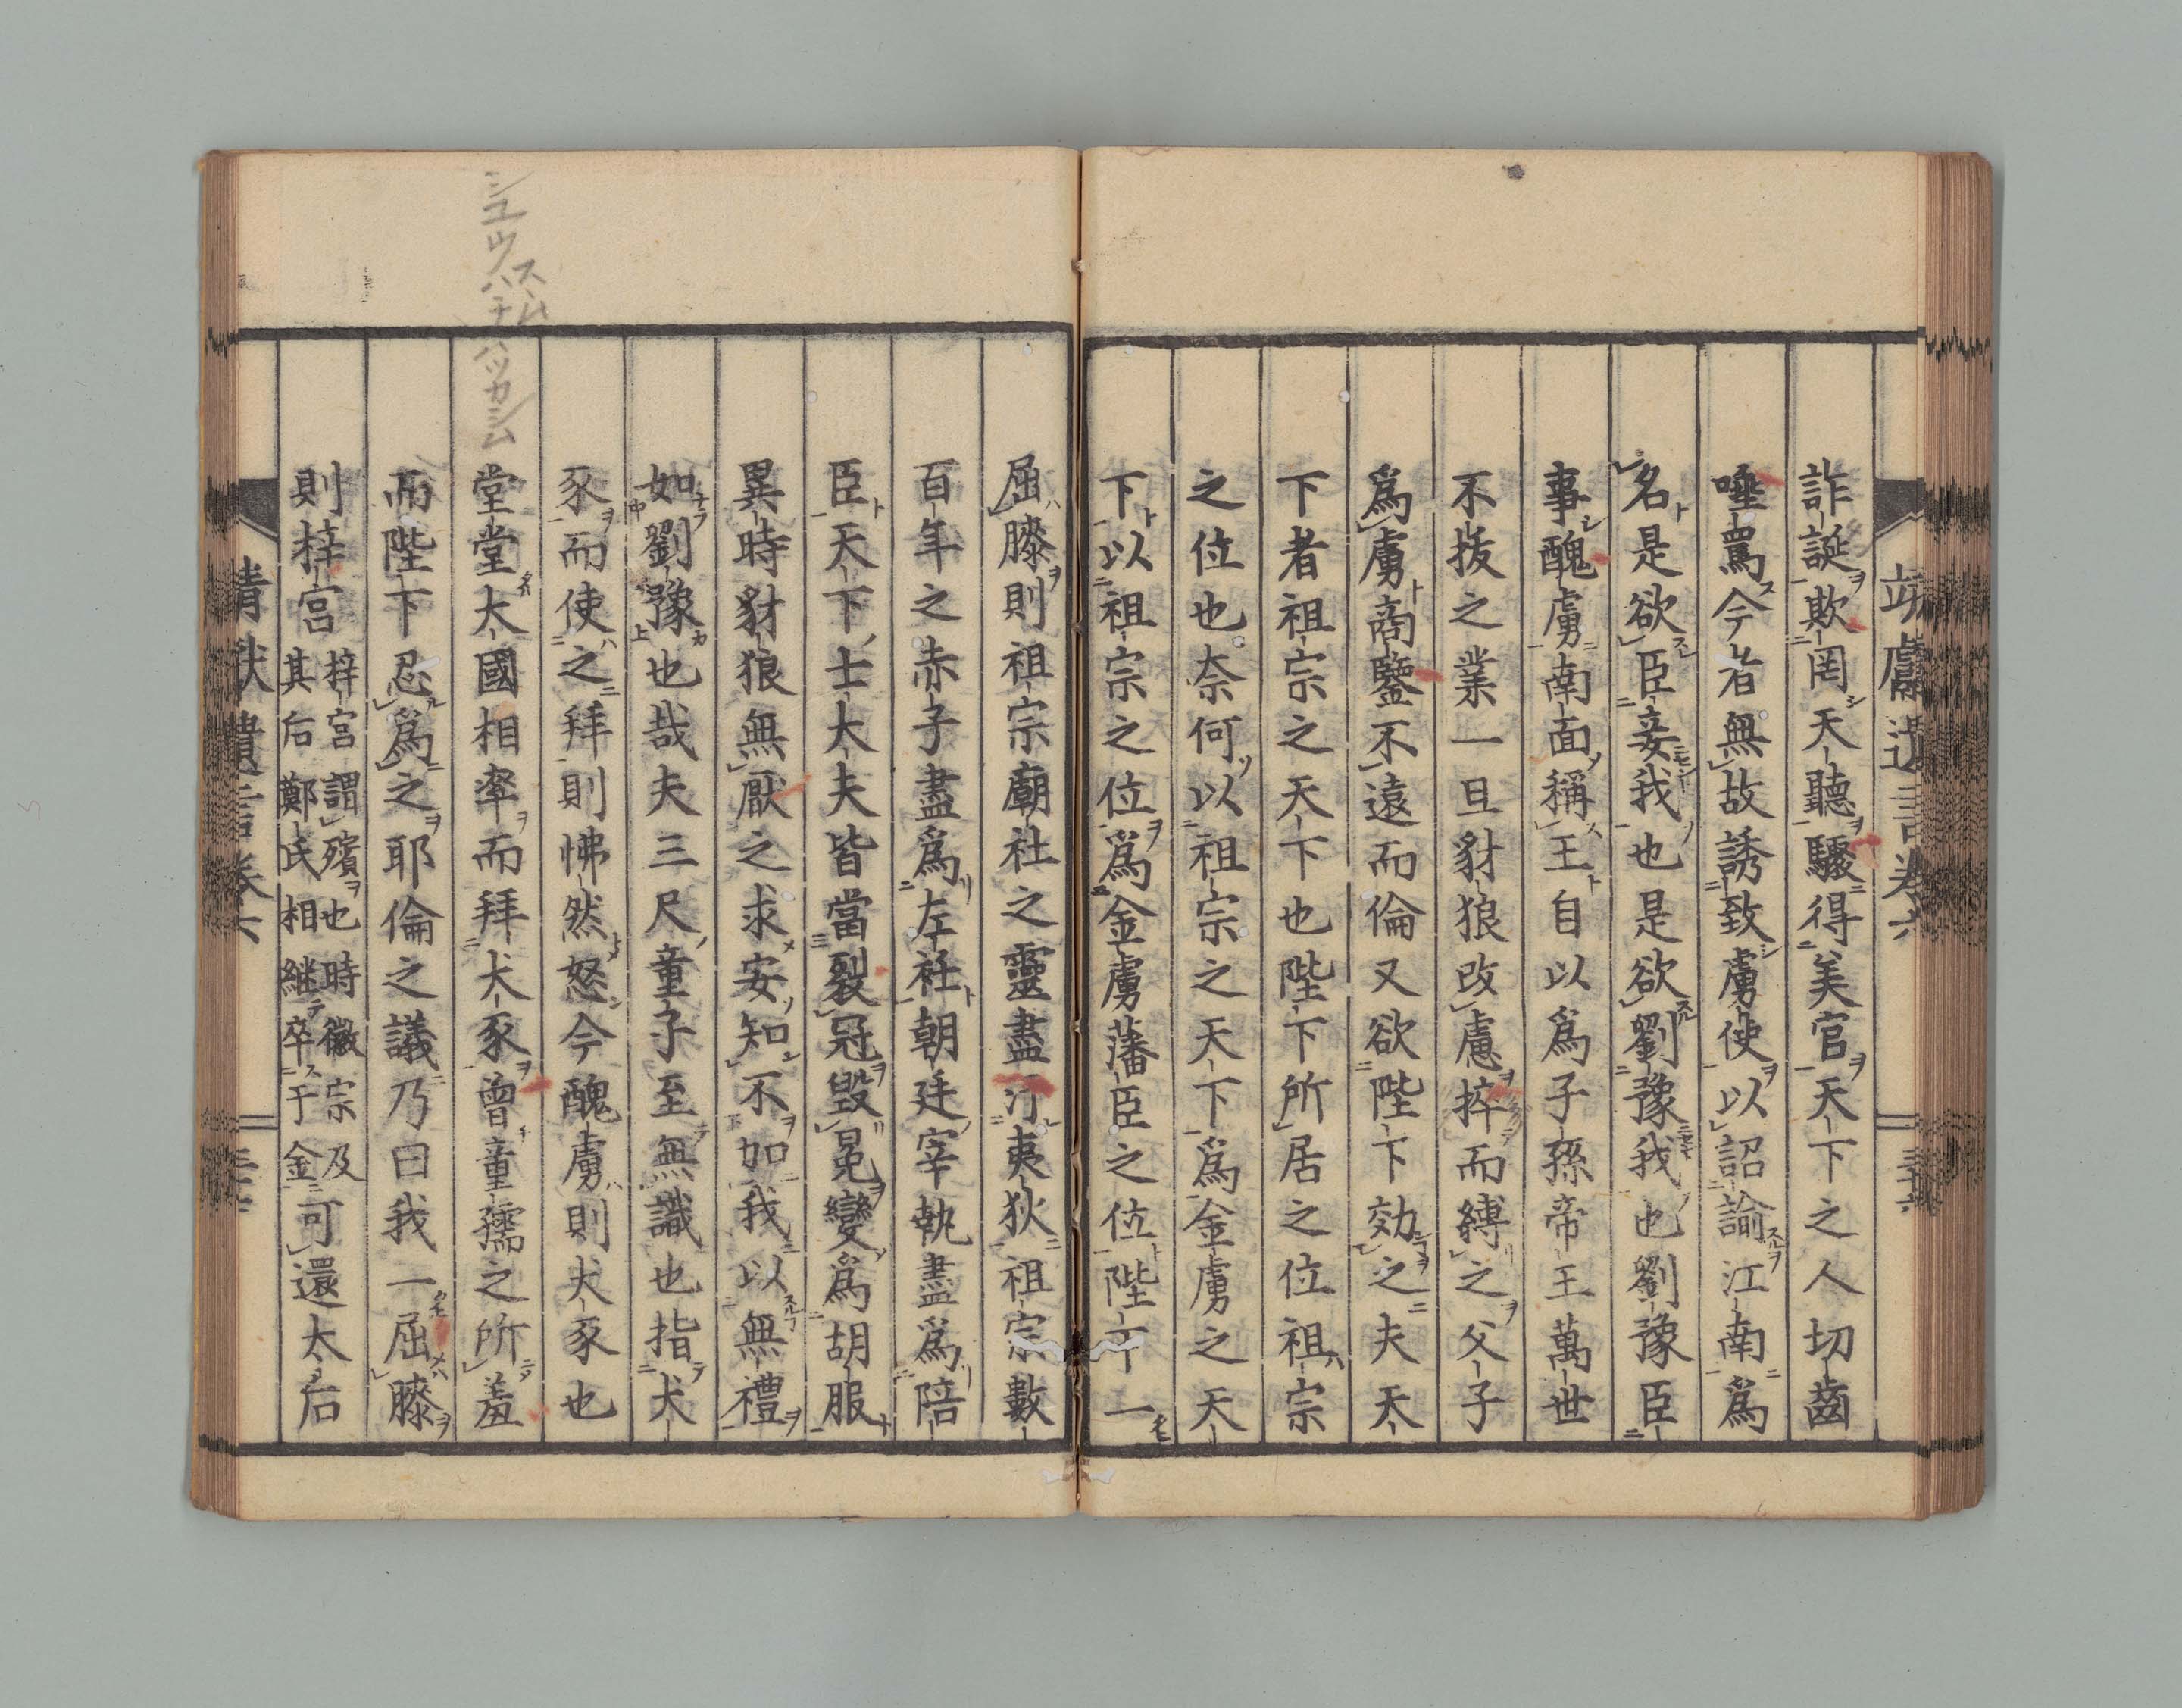 詐誕欺罔天聽驟得美官天下之人切齒
唾罵今者無故誘致虜使以詔諭江南爲
名是欲臣妾我也是欲劉豫我也劉豫臣
事醜虜南面稱王自以爲子孫帝王萬世
不拔之業一旦豺狼改慮捽而縛之父子
爲虜商鑒不遠而倫又欲陛下効之夫天
下者祖宗之天下也陛下所居之位祖宗
之位也奈何以祖宗之天下爲金虜之天
下以祖宗之位爲金虜藩臣之位陛下一
屈膝則祖宗廟社之靈盡汙夷狄祖宗數
百年之赤子盡爲左衽朝廷宰執盡爲陪
臣天下士大夫皆當裂冠毀冕變爲胡服
異時豺狼無厭之求安知不如我以無禮
如劉豫也哉夫三尺童子至無識也指犬
豕而使之拜則怫然怒今醜虜則犬豕也
堂堂大國相率而拜犬豕曾童孺之所羞
而陛下忍爲之耶倫之議乃曰我一屈膝
則梓宮梓宮謂殯也時徽宗及其后鄭氏相継卒于金可還太后
シユウハチ ハツカシム
ススム
靖獻遺言卷六